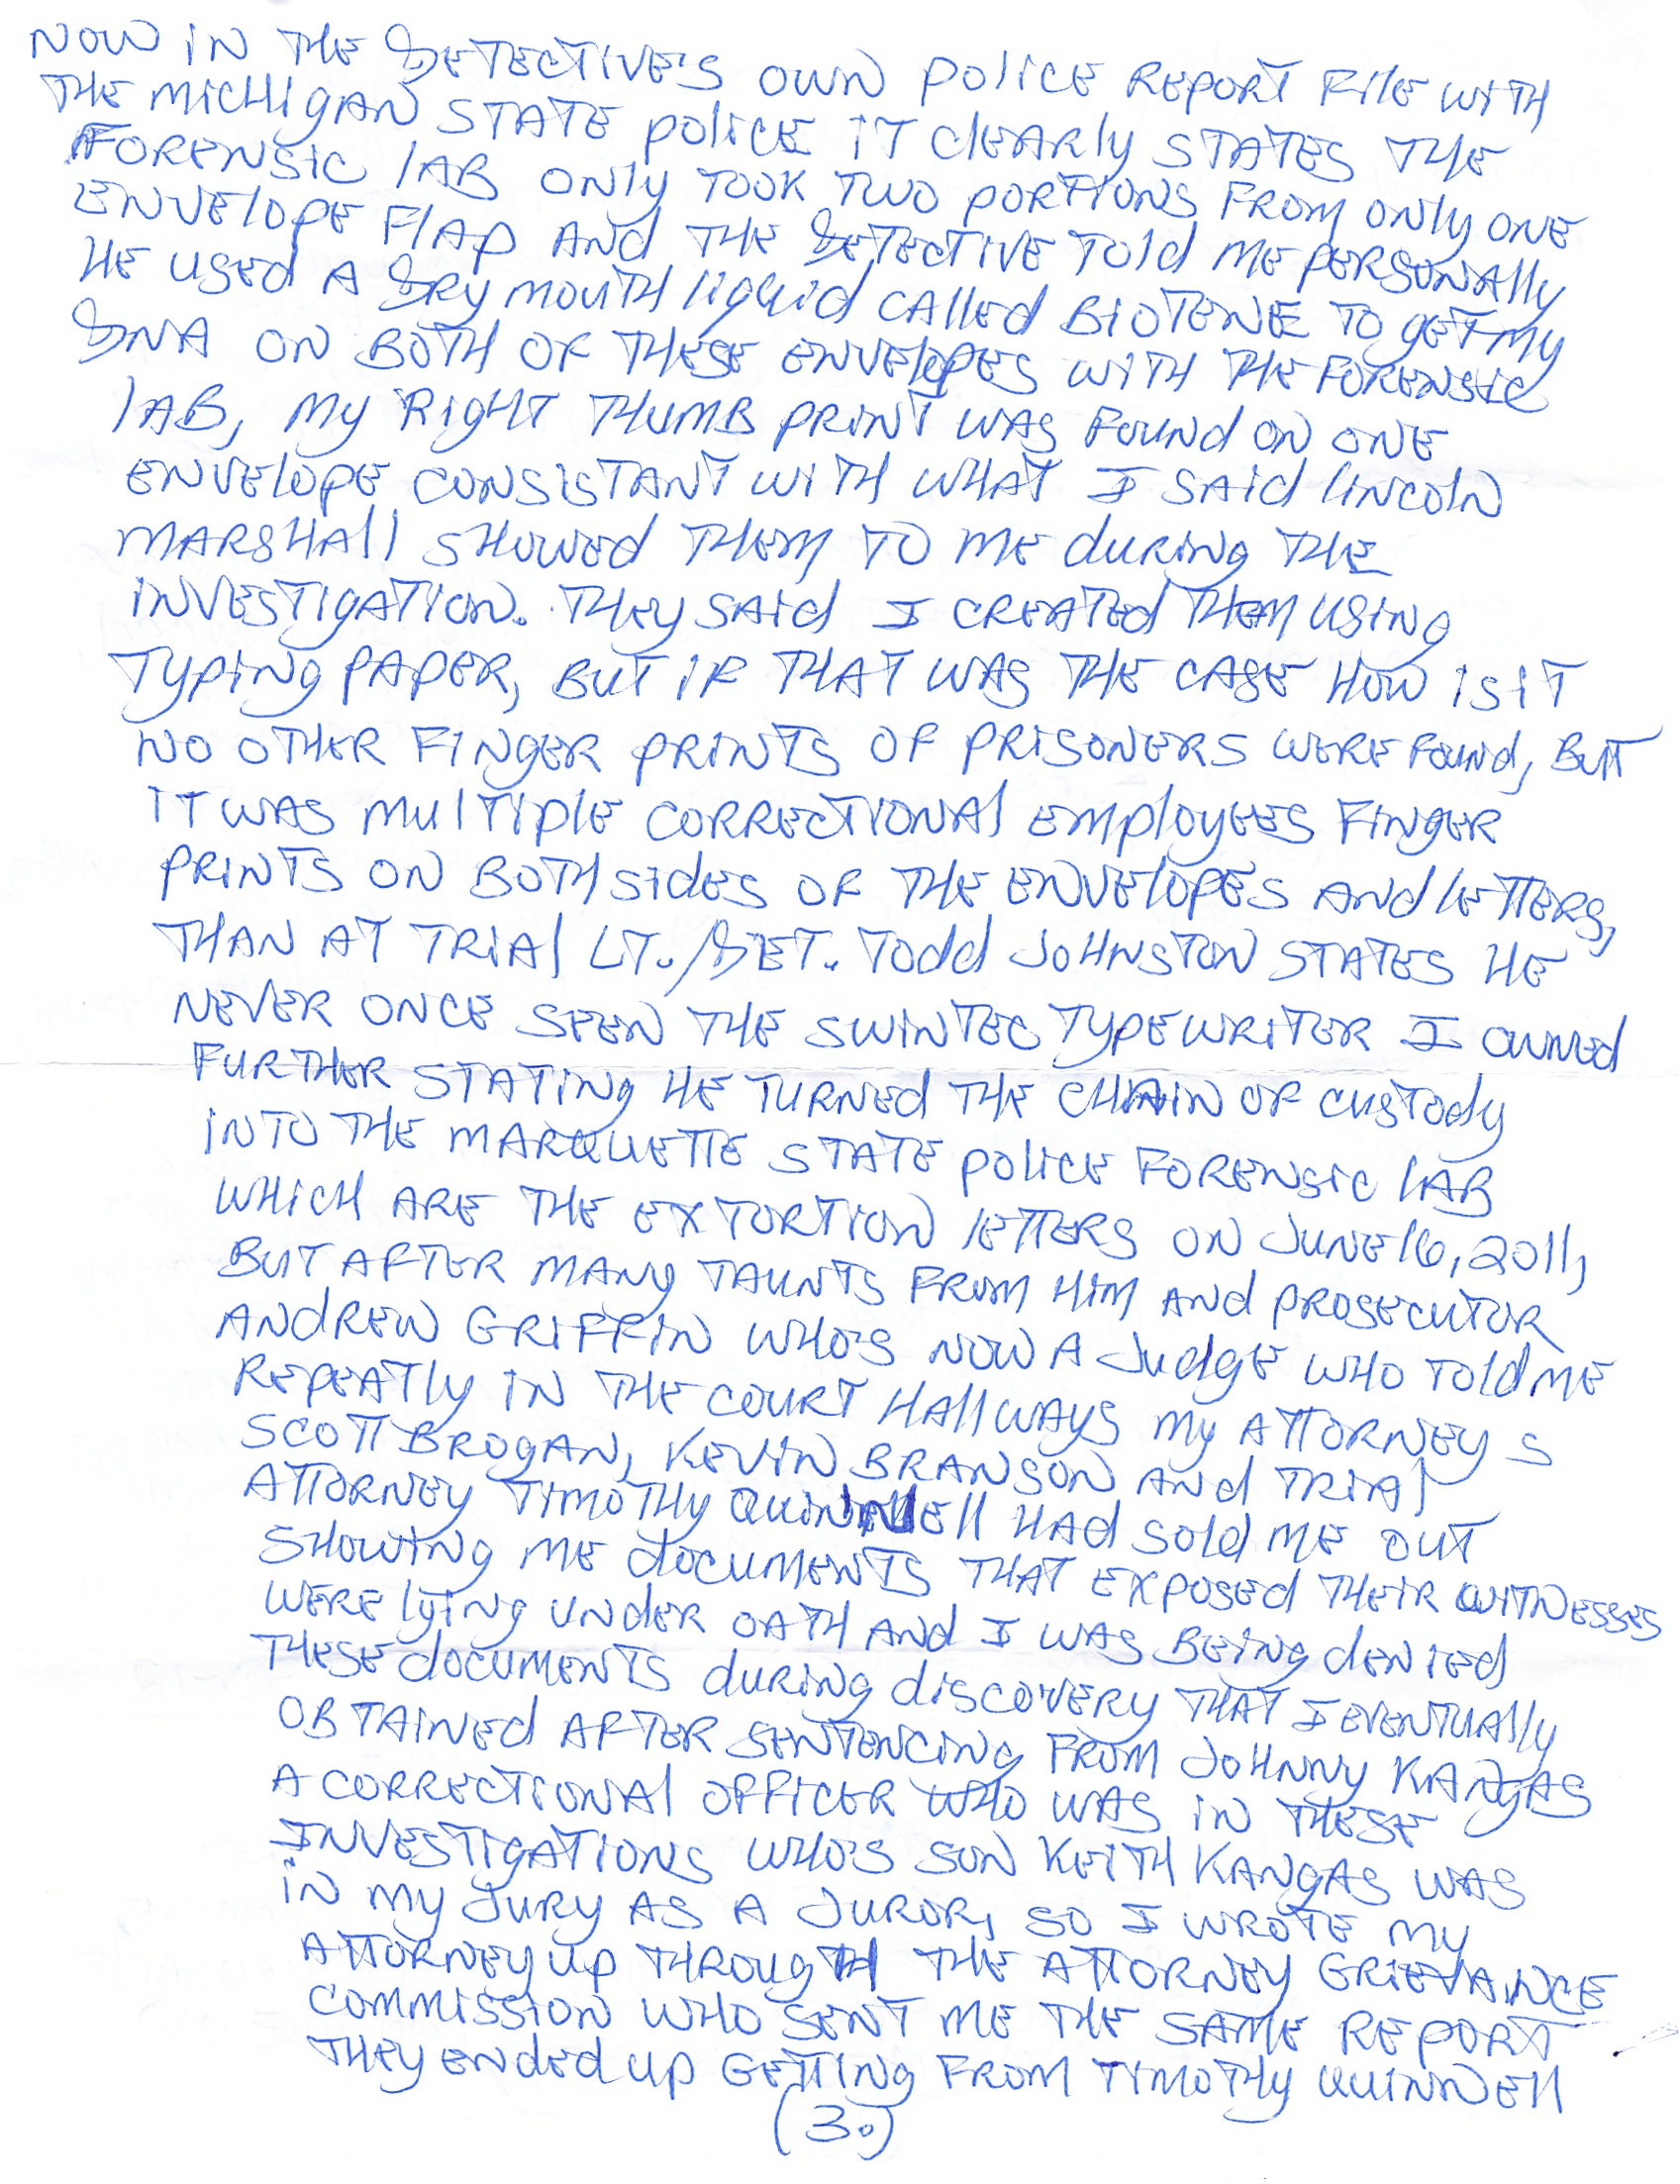 NOW IN THE DETECTIVE'S OWN POLICE REPORT FILE WITH
THE MICHIGAN STATE POLICE IT CLEARLY STATES THE
FORENSIC LAB ONLY TOOK TWO PORTIONS FROM ONLY ONE
ENVELOPE FLAP AND THE DETECTIVE TOLD ME PERSONALLY
HE USED A DRY MOUTH LIQUID CALLED BIOTENE TO GET MY
DNA ON BOTH OF THESE ENVELOPES WITH THE FORENSIC
LAB, MY RIGHT THUMB PRINT WAS FOUND ON ONE
ENVELOPE CONSISTANT WITH WHAT I SAID LINCOLN
MARSHALL SHOWED THEM TO ME DURING THE
INVESTIGATION. THEY SAID I CREATED THEM USING
TYPING PAPER, BUT IF THAT WAS THE CASE HOW IS IT
NO OTHER FINGER PRINTS OF PRISONERS WERE FOUND, BUT
IT WAS MULTIPLE CORRECTIONAL EMPLOYEES FINGER
PRINTS ON BOTH SIDES OF THE ENVELOPES AND LETTERS,
THAN AT TRIAL LT./DET. TODD JOHNSTON STATES HE
NEVER ONCE SEEN THE SWINTEC TYPEWRITER I OWNED
FURTHER STATING HE TURNED THE CHAIN OF CUSTODY
INTO THE MARQUETTE STATE POLICE FORENSIC LAB
WHICH ARE THE EXTORTION LETTERS ON JUNE 16, 2011,
BUT AFTER MANY TAUNTS FROM HIM AND PROSECUTOR
ANDREW GRIFFIN WHO'S NOW A JUDGE WHO TOLD ME
REPEATLY IN THE COURT HALLWAYS MY ATTORNEYS
SCOTT BROGAN, KEVIN BRANSON AND TRIAL
ATTORNEY TIMOTHY QUINNELL HAD SOLD ME OUT
SHOWING ME DOCUMENTS THAT EXPOSED THEIR WITNESSES
WERE LYING UNDER OATH AND I WAS BEING DENIED
THESE DOCUMENTS DURING DISCOVERY THAT I EVENTUALLY
OBTAINED AFTER SENTENCING FROM JOHNNY KANGAS
A CORRECTIONAL OFFICER WHO WAS IN THESE
INVESTIGATIONS WHO'S SON KEITH KANGAS WAS
IN MY JURY AS A JUROR, SO I WROTE MY
ATTORNEY UP THROUGH THE ATTORNEY GRIEVANCE
COMMISSION WHO SENT ME THE SAME REPORT
THEY ENDED UP GETTING FROM TIMOTHY QUINNELL
(3.)